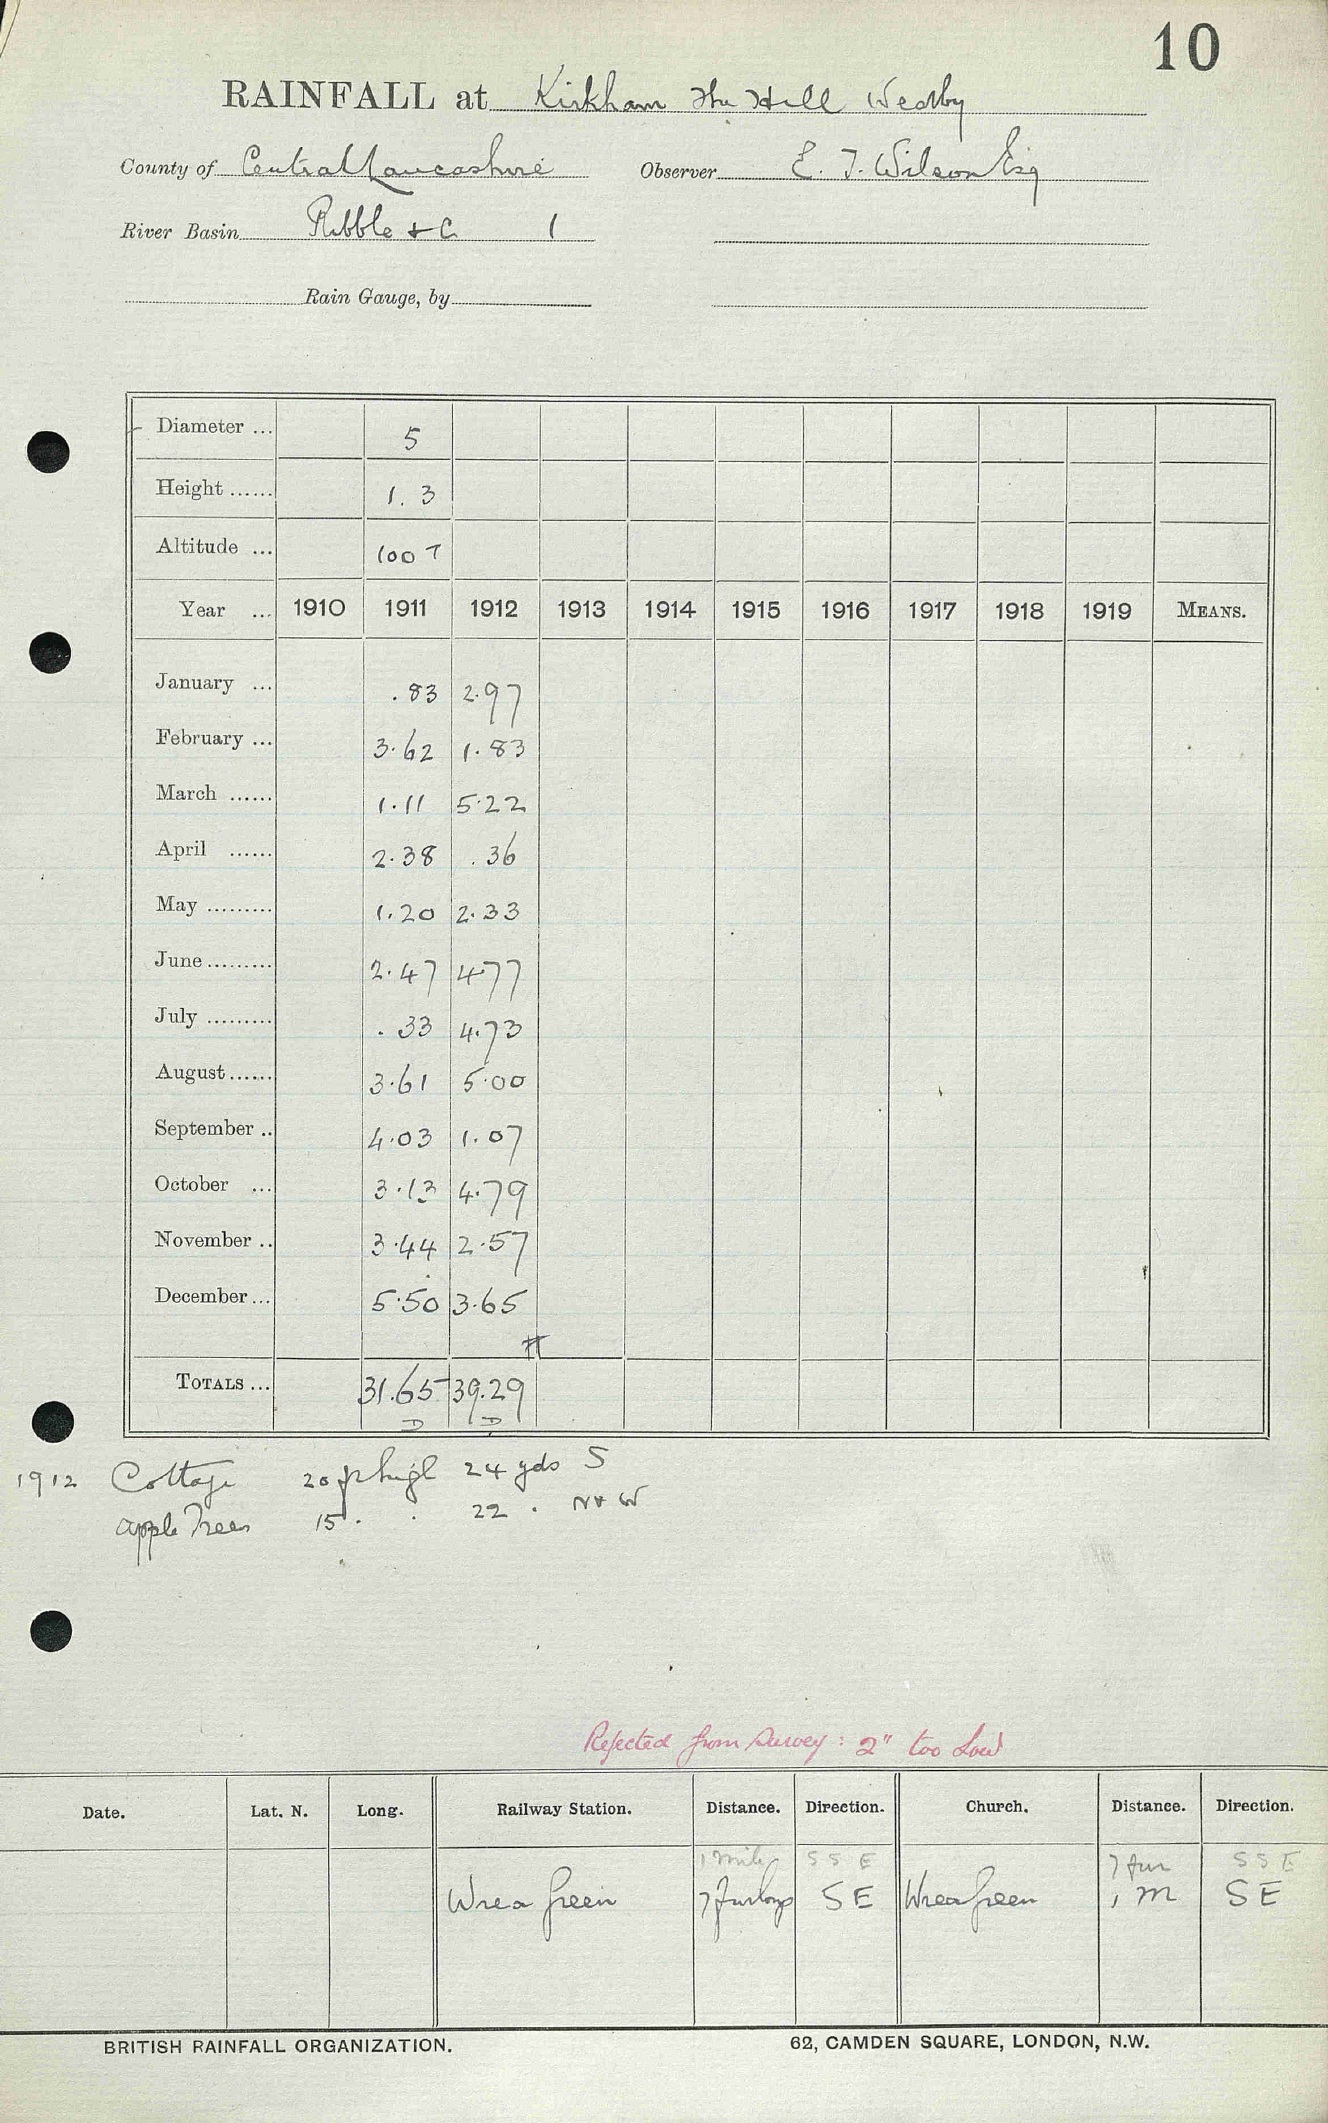 10
RAINFALL at Kirkham The Hill Weatby
County of Central Lancashire Observer E. J. Wilson Esq
River Basin Ribble & C 1
Rain Gauge, by
Diameter ... 5
Height ...... 1. 3
Altitude ... 100 T
Year ... 1910 1911 1912 1913 1914 1915 1916 1917 1918 1919 MEANS.
January ... .83 2.97
February ... 3.62 1.83
March ...... 1.11 5.22
April ...... 2.38 .36
May ......... 1.20 2.33
June ......... 2.47 4.77
July ......... .33 4.73
August ...... 3.61 5.00
September .. 4.03 1.07
October ... 3.13 4.79
November .. 3.44 2.57
December ... 5.50 3.65
TOTALS ... 31.65 39.29
D D
1912 Cottage 20 ft high 24 yds S
apple Trees 15 . . 22 . N & W
Rejected from Survey: 2" too low
Date. Lat. N. Long. Railway Station. Distance. Direction. Church. Distance. Direction.
1 mile SSE 7 fur SSE
Wrea Green 7 furlongs SE Wrea Green 1 m SE
BRITISH RAINFALL ORGANIZATION. 62, CAMDEN SQUARE, LONDON, N.W.